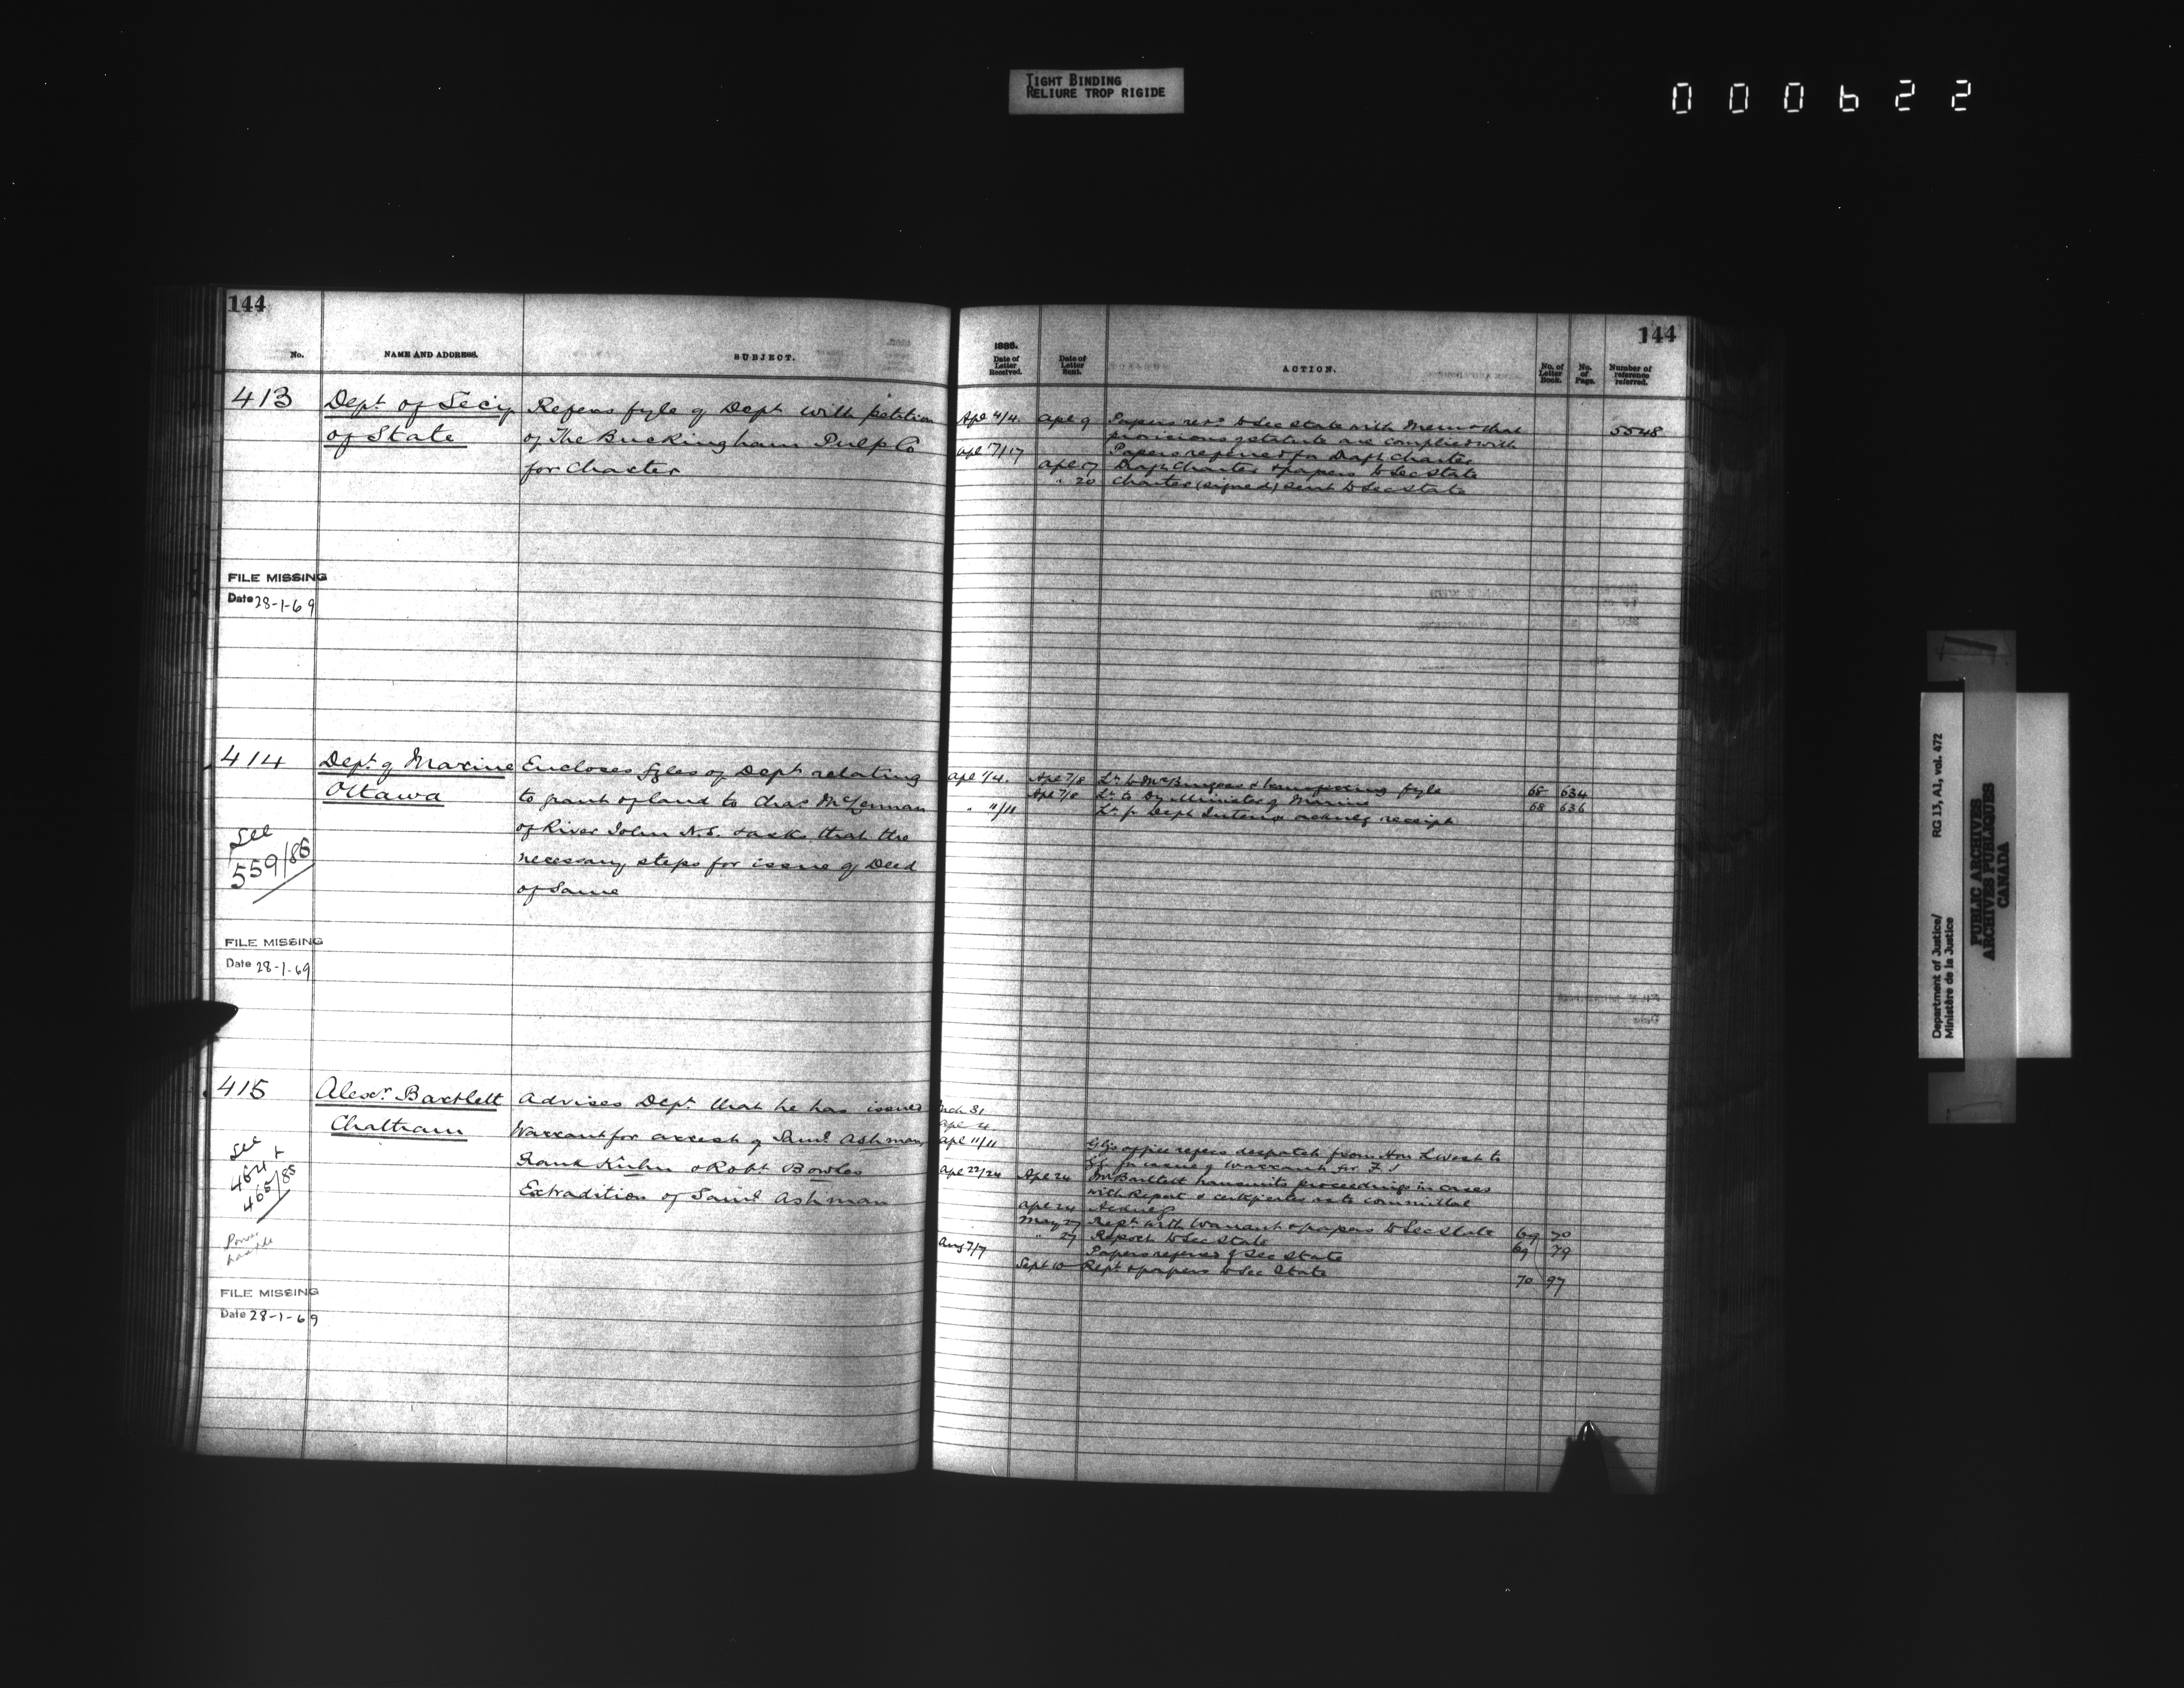 TIGHT BINDING
RELIURE TROP RIGIDE
000622
144
No.
NAME AND ADDRESS.
SUBJECT.
413
Dept of Secy
of State
Refers fyle of Dept with petition
of The Buckingham Pulp Co
for Charter
FILE MISSING
Date 28-1-69
414
Dept of Marine
Ottawa
See
559/86
Encloses fyles of Dept relating
to grant of land to Chas McLennan
of River John N.S. & asks that the
necessary steps for issue of Deed
of Same
FILE MISSING
Date 28-1-69
415
Alexr Bartlett
Chatham
See
464 &
465/86
Advises Dept that he has issued
Warrant for arrest of Saml Ashman
Frank Kuhn & Robt Bowles
Extradition of Saml Ashman
FILE MISSING
Date 28-1-69
144
1886.
Date of Letter Received.
Date of Letter Sent.
ACTION.
No. of Letter Book.
No. of Page.
Number of reference referred.
Apl 4/4 Apl 9 Papers retd to Sec State with Memo that 5548
provisions of statute are complied with
Apl 17/17 Papers referred for Draft Charter
Apl 17 Draft Charter & papers to Sec State
" 20 Charter (signed) sent to Sec State
Apl 1/4. Apl 7/8 Lr to Mr Burgess & transferring fyle 68 634
Apl 7/8 Lr to Dy Minister of Marine 68 636
" 11/11 Lr fr Dept Interior acknlg receipt
Mch 31
Apl 4
Apl 11/11 GG's office refers despatch from Hon L West to
GG for issue of warrant for F. J
Apl 22/24 Apl 24 Mr Bartlett transmits proceedings in cases
with Report & certificates as to committal
Apl 24 Acknlg
May 27 Rept with Warrant & papers to Sec State 69 70
" 27 Report to Sec State 69 79
Aug 7/7 Papers referred of Sec State
Sept 10 Rept & papers to Sec State 70 97
Department of Justice/
Ministère de la Justice
RG 13, A1, vol. 472
PUBLIC ARCHIVES
ARCHIVES PUBLIQUES
CANADA